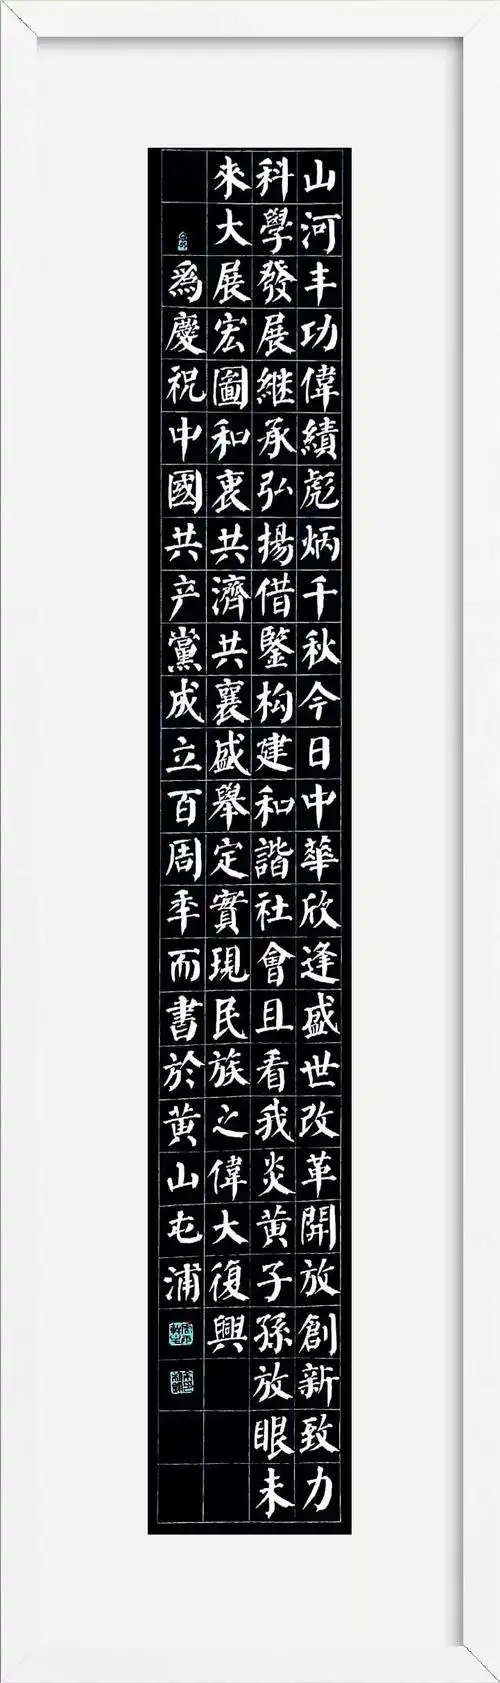 山河丰功偉績彪炳千秋今日中華欣逢盛世改革開放創新致力
科學發展継承弘揚借鑒构建和諧社會且看我炎黄子孫放眼未
來大展宏圖和衷共濟共襄盛舉定實現民族之偉大復興
爲慶祝中國共产黨成立百周年而書於黄山屯浦